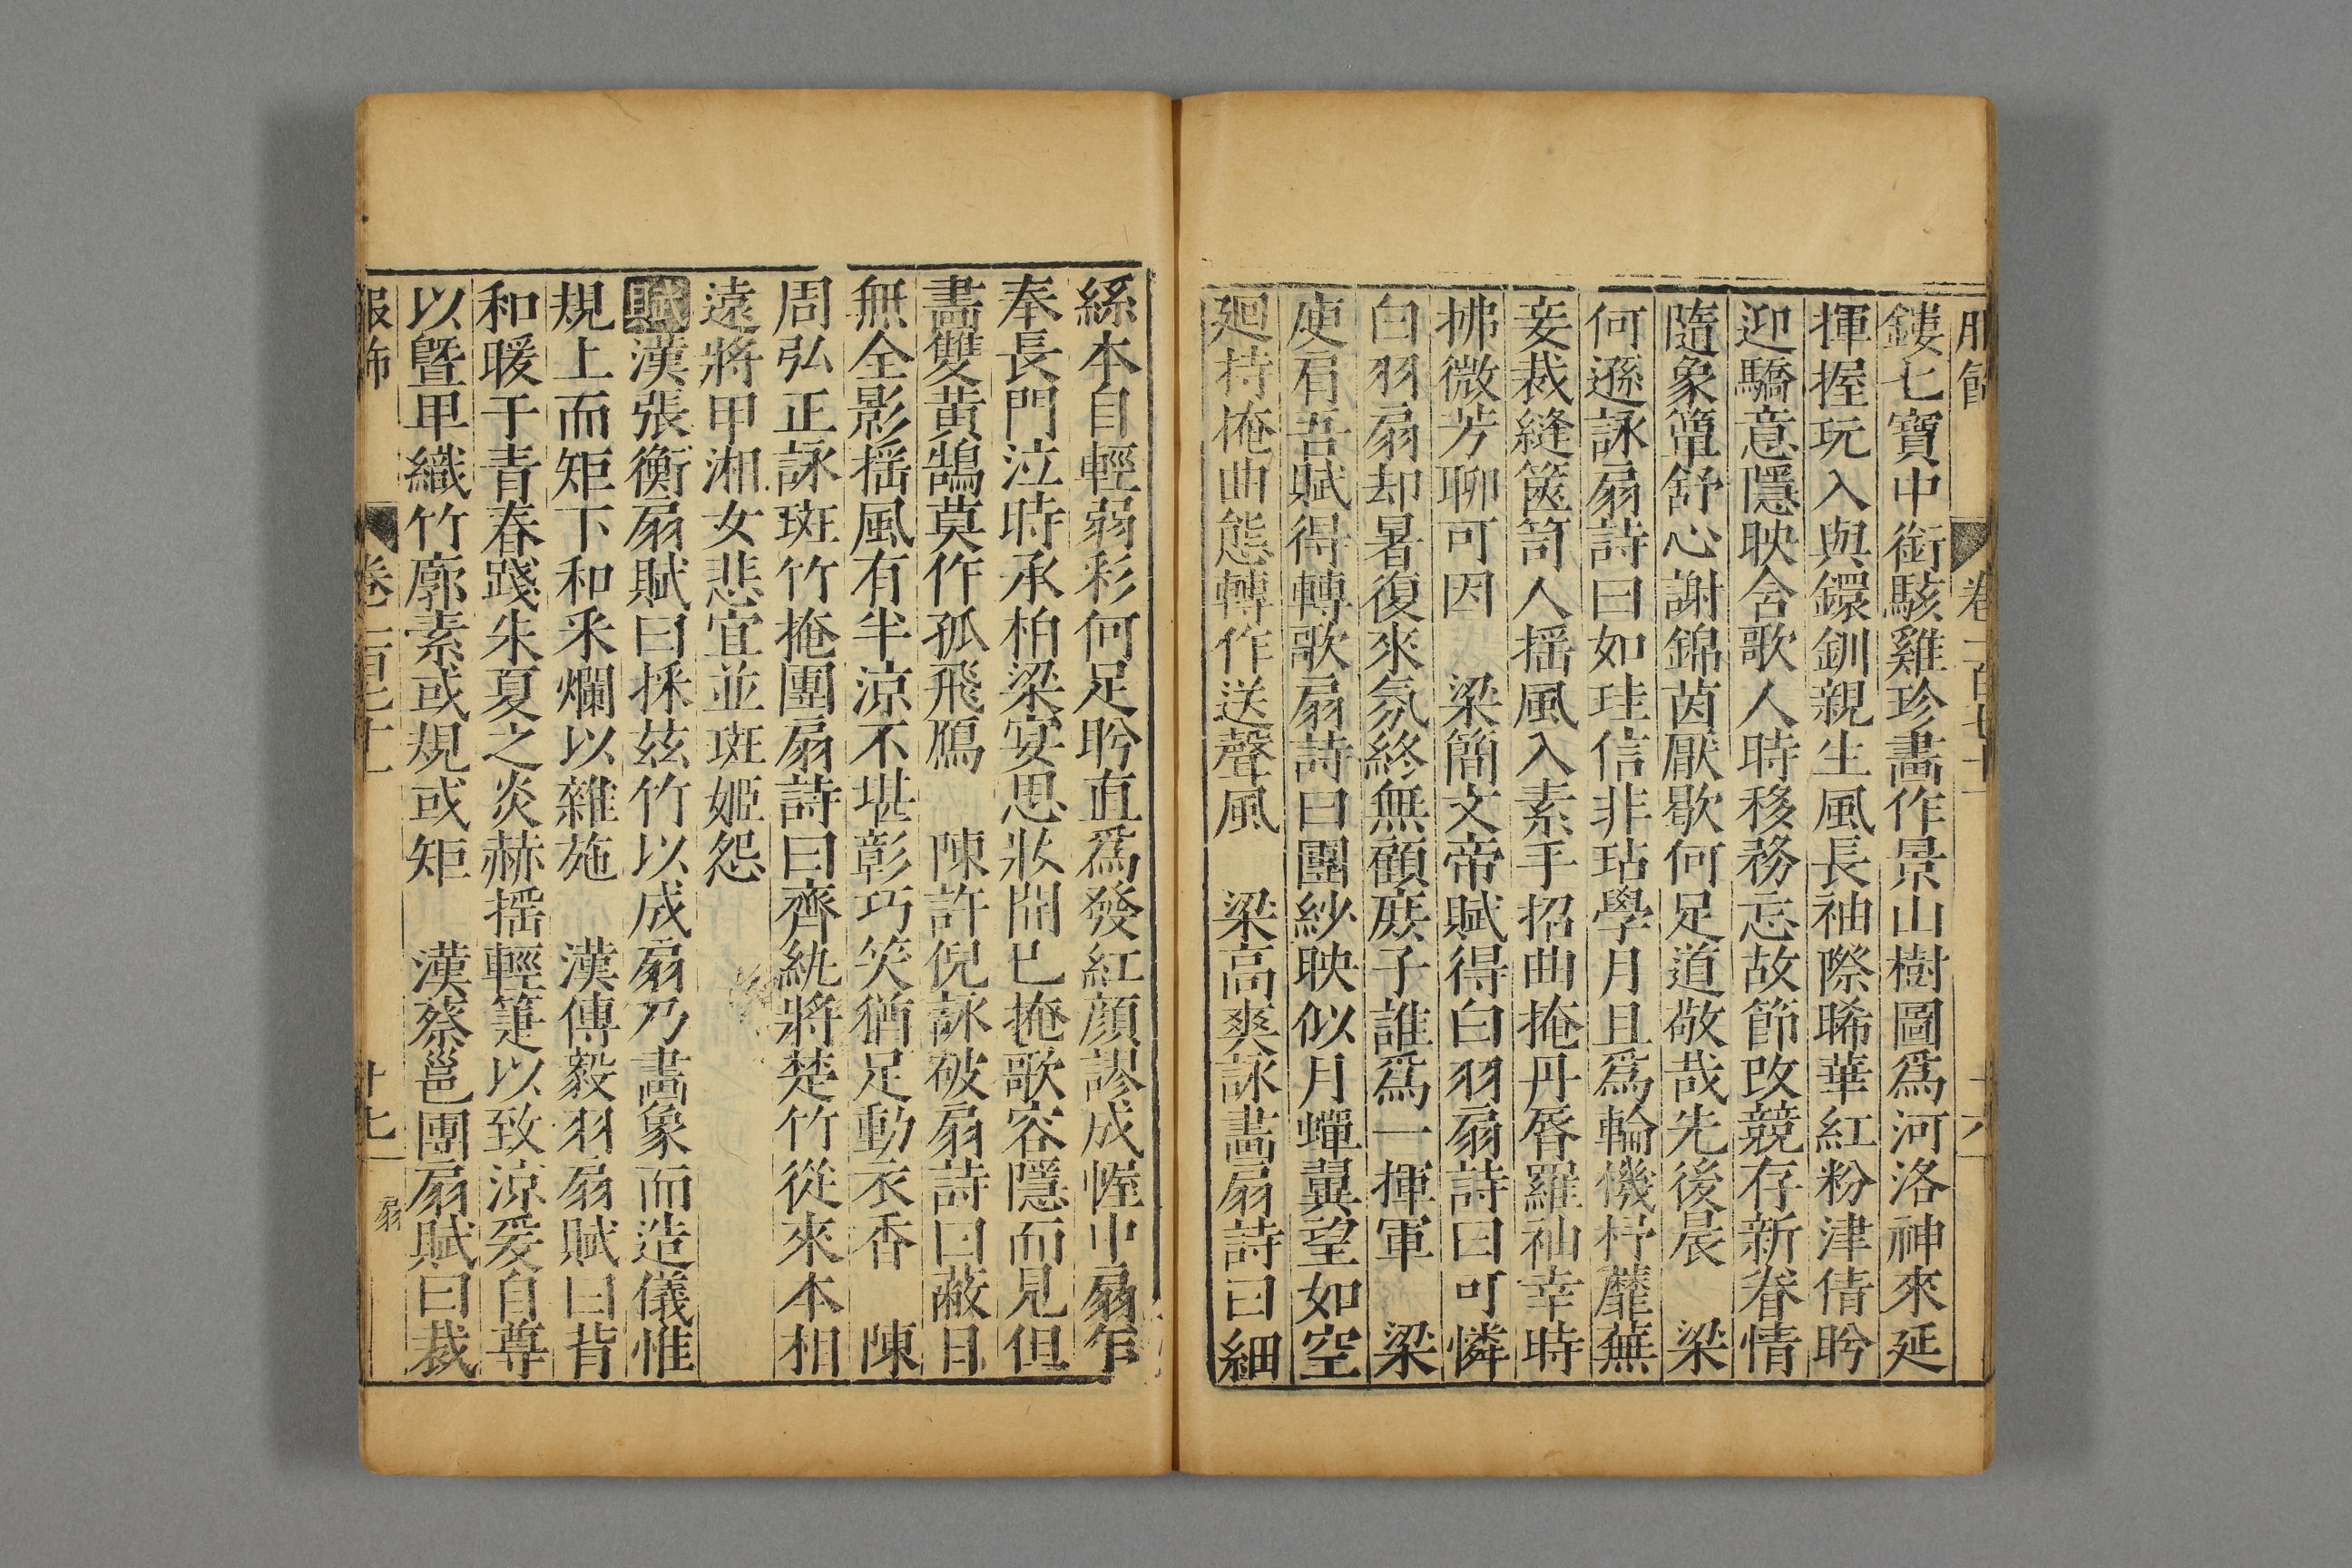 鏤七寶中銜駭雞珍畵作景山樹圖爲河洛神來延
揮握玩入與鐶釧親生風長袖際晞華紅粉津倩盻
迎驕意隱映含歌人時移務忘故節改競存新眷情
隨象簟舒心謝錦茵厭歇何足道敬哉先後晨 梁
何遜詠扇詩曰如珪信非玷學月且爲輪機杼蘼蕪
妾裁縫篋笥人揺風入素手招曲掩丹脣羅袖幸時
拂微芳聊可因 梁簡文帝賦得白羽扇詩曰可憐
白羽扇却暑復來氛終無顧庶子誰爲一揮軍 梁
庾肩吾賦得轉歌扇詩曰團紗映似月蟬翼望如空
廻持掩曲態轉作送聲風 梁高爽詠畵扇詩曰細
絲本自輕弱彩何足盻直爲發紅顔謬成幄中扇乍
奉長門泣時承柏梁宴思妝開已掩歌容隱而見但
畵雙黃鵠莫作孤飛鴈 陳許倪詠破扇詩曰蔽日
無全影揺風有半涼不堪彰巧笑猶足動衣香 陳
周弘正詠斑竹掩團扇詩曰齊紈將楚竹從來本相
遠將甲湘女悲宜並班姬怨
賦漢張衡扇賦曰採兹竹以成扇乃畵象而造儀惟
規上而矩下和釆爛以雜施 漢傅毅羽扇賦曰背
和暖于青春踐朱夏之炎赫揺輕箑以致涼爰自尊
以曁甲織竹廓素或規或矩 漢蔡邕團扇賦曰裁
服飾 卷三百七十一 十七 扇